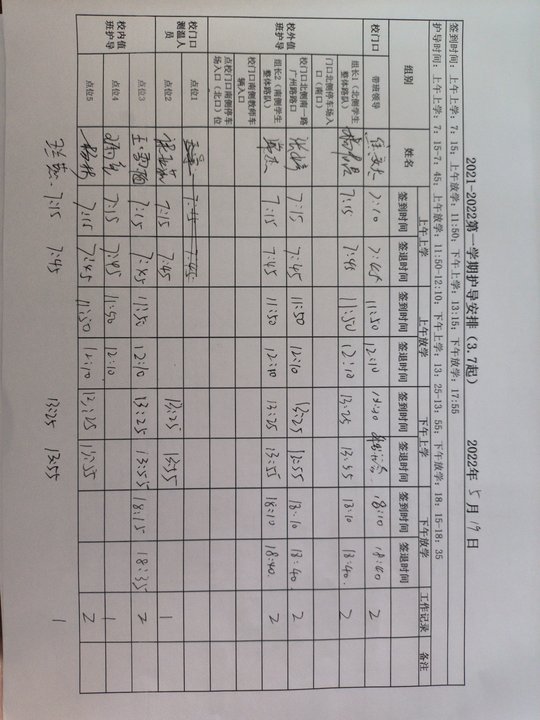 2021-2022第一学期护导安排（3.7起） 2022年 5月 19日
签到时间：上午上学：7：15；上午放学：11:50；下午上学：13:15；下午放学：17:55
护导时间：上午上学：7：15-7：45；上午放学：11:50-12:10；下午上学：13：25-13：55；下午放学：18：15-18：35
组别 姓名 上午上学 上午放学 下午上学 下午放学 工作记录 备注
签到时间 签退时间 签到时间 签退时间 签到时间 签退时间 签到时间 签退时间
校门口 带班领导 7:10 7:45 11:50 12:10 18:10 18:40 2
校外值班护导 组长1（北侧学生整体路队） 7:15 7:45 11:50 12:10 13:25 13:55 18:10 18:40. 2
门口北侧停车场入口（南口）
校门口北侧南一路广州路路口 7:15 7:45 11:50 12:10 13:25 13:55 18:10 18:40. 2
组长2（南侧学生整体路队） 7:15 7:45 11:50 12:10 13:25 13:55 18:10 18:40. 2
校门口南侧教师车辆入口
点校门口南侧停车场入口（北口）位
校门口测温人员 点位1 7:45 7:45
点位2 7:15 7:45 13:25 13:55 1
校内值班护导 点位3 7:15 7:45 11:50 12:10 13:25 13:55 18:15 18:35 2
点位4 7:15 7:45 11:50 12:10 1
点位5 7:15 7:45 11:50 12:10 13:25 13:55 2
7:15 7:45 13:25 13:55 1